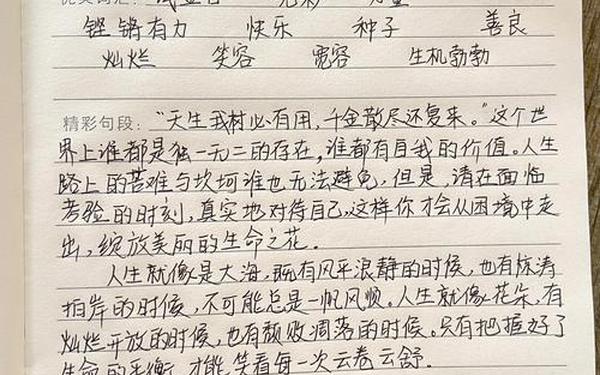 铿锵有力 快乐 种子 善良
灿烂 笑容 宽容 生机勃勃
精彩句段："天生我材必有用，千金散尽还复来。"这个世
界上谁都是独一无二的存在，谁都有自我的价值。人生
路上的苦难与坎坷谁也无法避免，但是，请在面临
考验的时刻，真实地对待自己，这样你才会从困境中走
出，绽放美丽的生命之花。
人生就像是大海，既有风平浪静的时候，也有惊涛
拍岸的时候，不可能总是一帆风顺。人生就像花朵，有
灿烂开放的时候，也有颓败凋落的时候。只有把握好了
生命的平衡，才能笑看每一次云卷云舒。